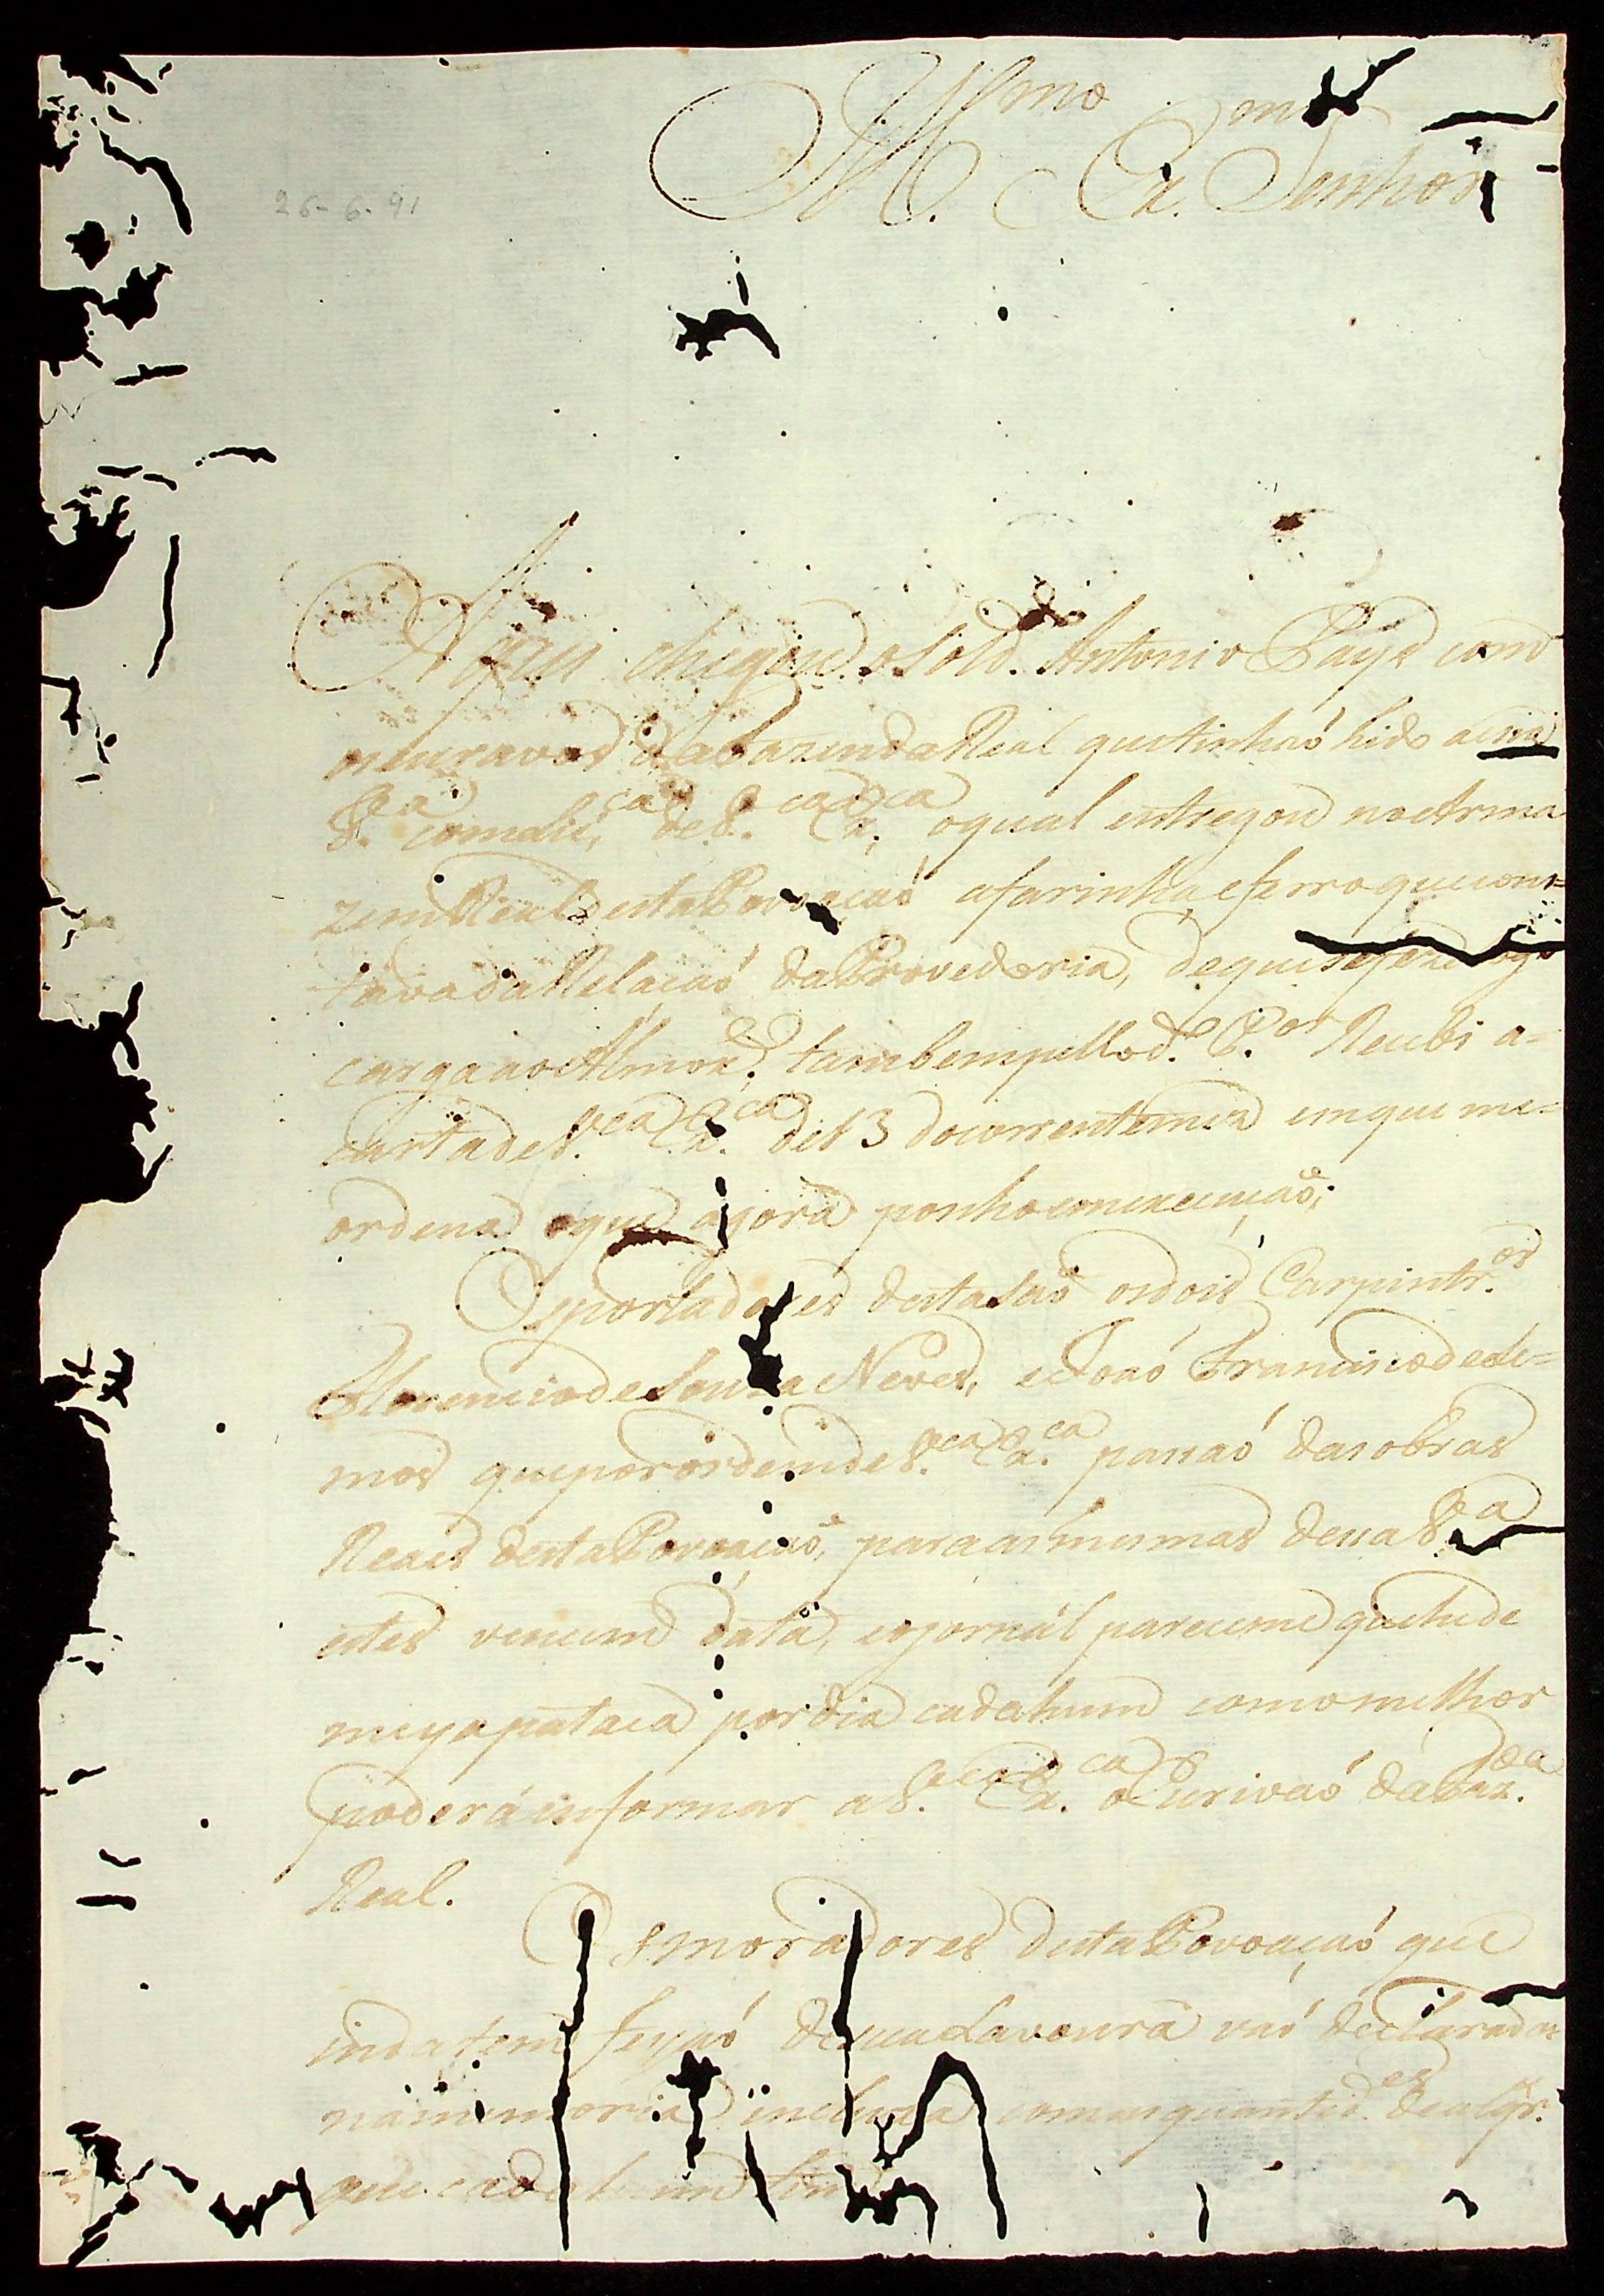 Ill.mo Ex.mo Senhor
26-6-91
Aqui chegou o Sold. Antonio Payz com
os escravos da Fazenda Real que tinhaó hido a essa
V.a com lic.ca de V.ca Ex.ca, o qual entregou no Arma
zem Real desta Povoacaó a farinha e ferro que cons=
tava da Relacaó da Provedoria, de que se fez logo
carga ao Almox.e, tambem pello d.o P.or Recebi a=
carta de V.ca Ex.ca de 13 do corrente mez em que me=
ordena o que agora ponho em execuçaõ;
Os portadores desta saõ os dois Carpintr.os
Florencio de Souza Neves, e Joaó Francisco de Le=
mos que por ordem de V.ca Ex.ca passaó das obras
Reaes desta Povoacaõ, para as mesmas dessa V.a
estes vencem data, e o jornal pareceme que he de
meya pataca por dia cada hum como melhor
poderá informar a V.ca Ex.ca o Escrivaó da Faz.da
Real.
Os moradores desta Povoaçaó que
inda tem feyjaó de sua Lavoura vaó declarados
na memoria incluza com as quantid.es de alqr.
que cada hum tem